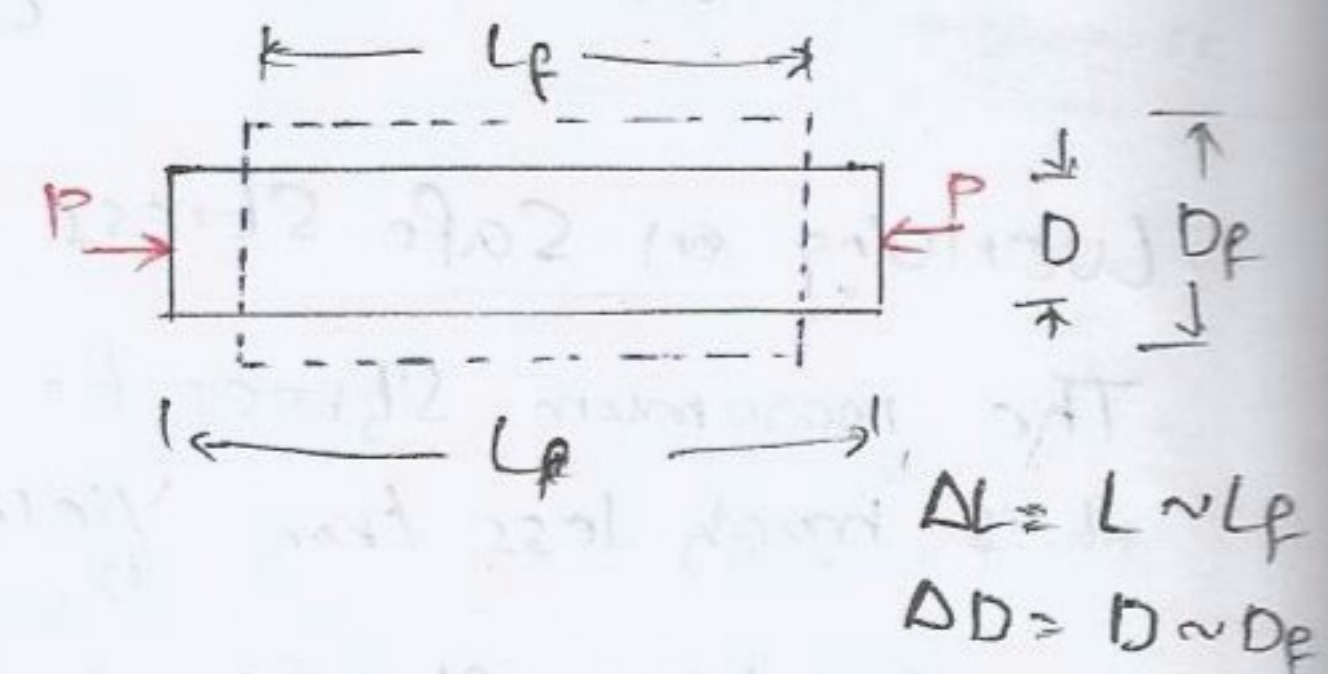 Lf
P
P
D
Df
Lf
ΔL = L ~ Lf
ΔD = D ~ Df